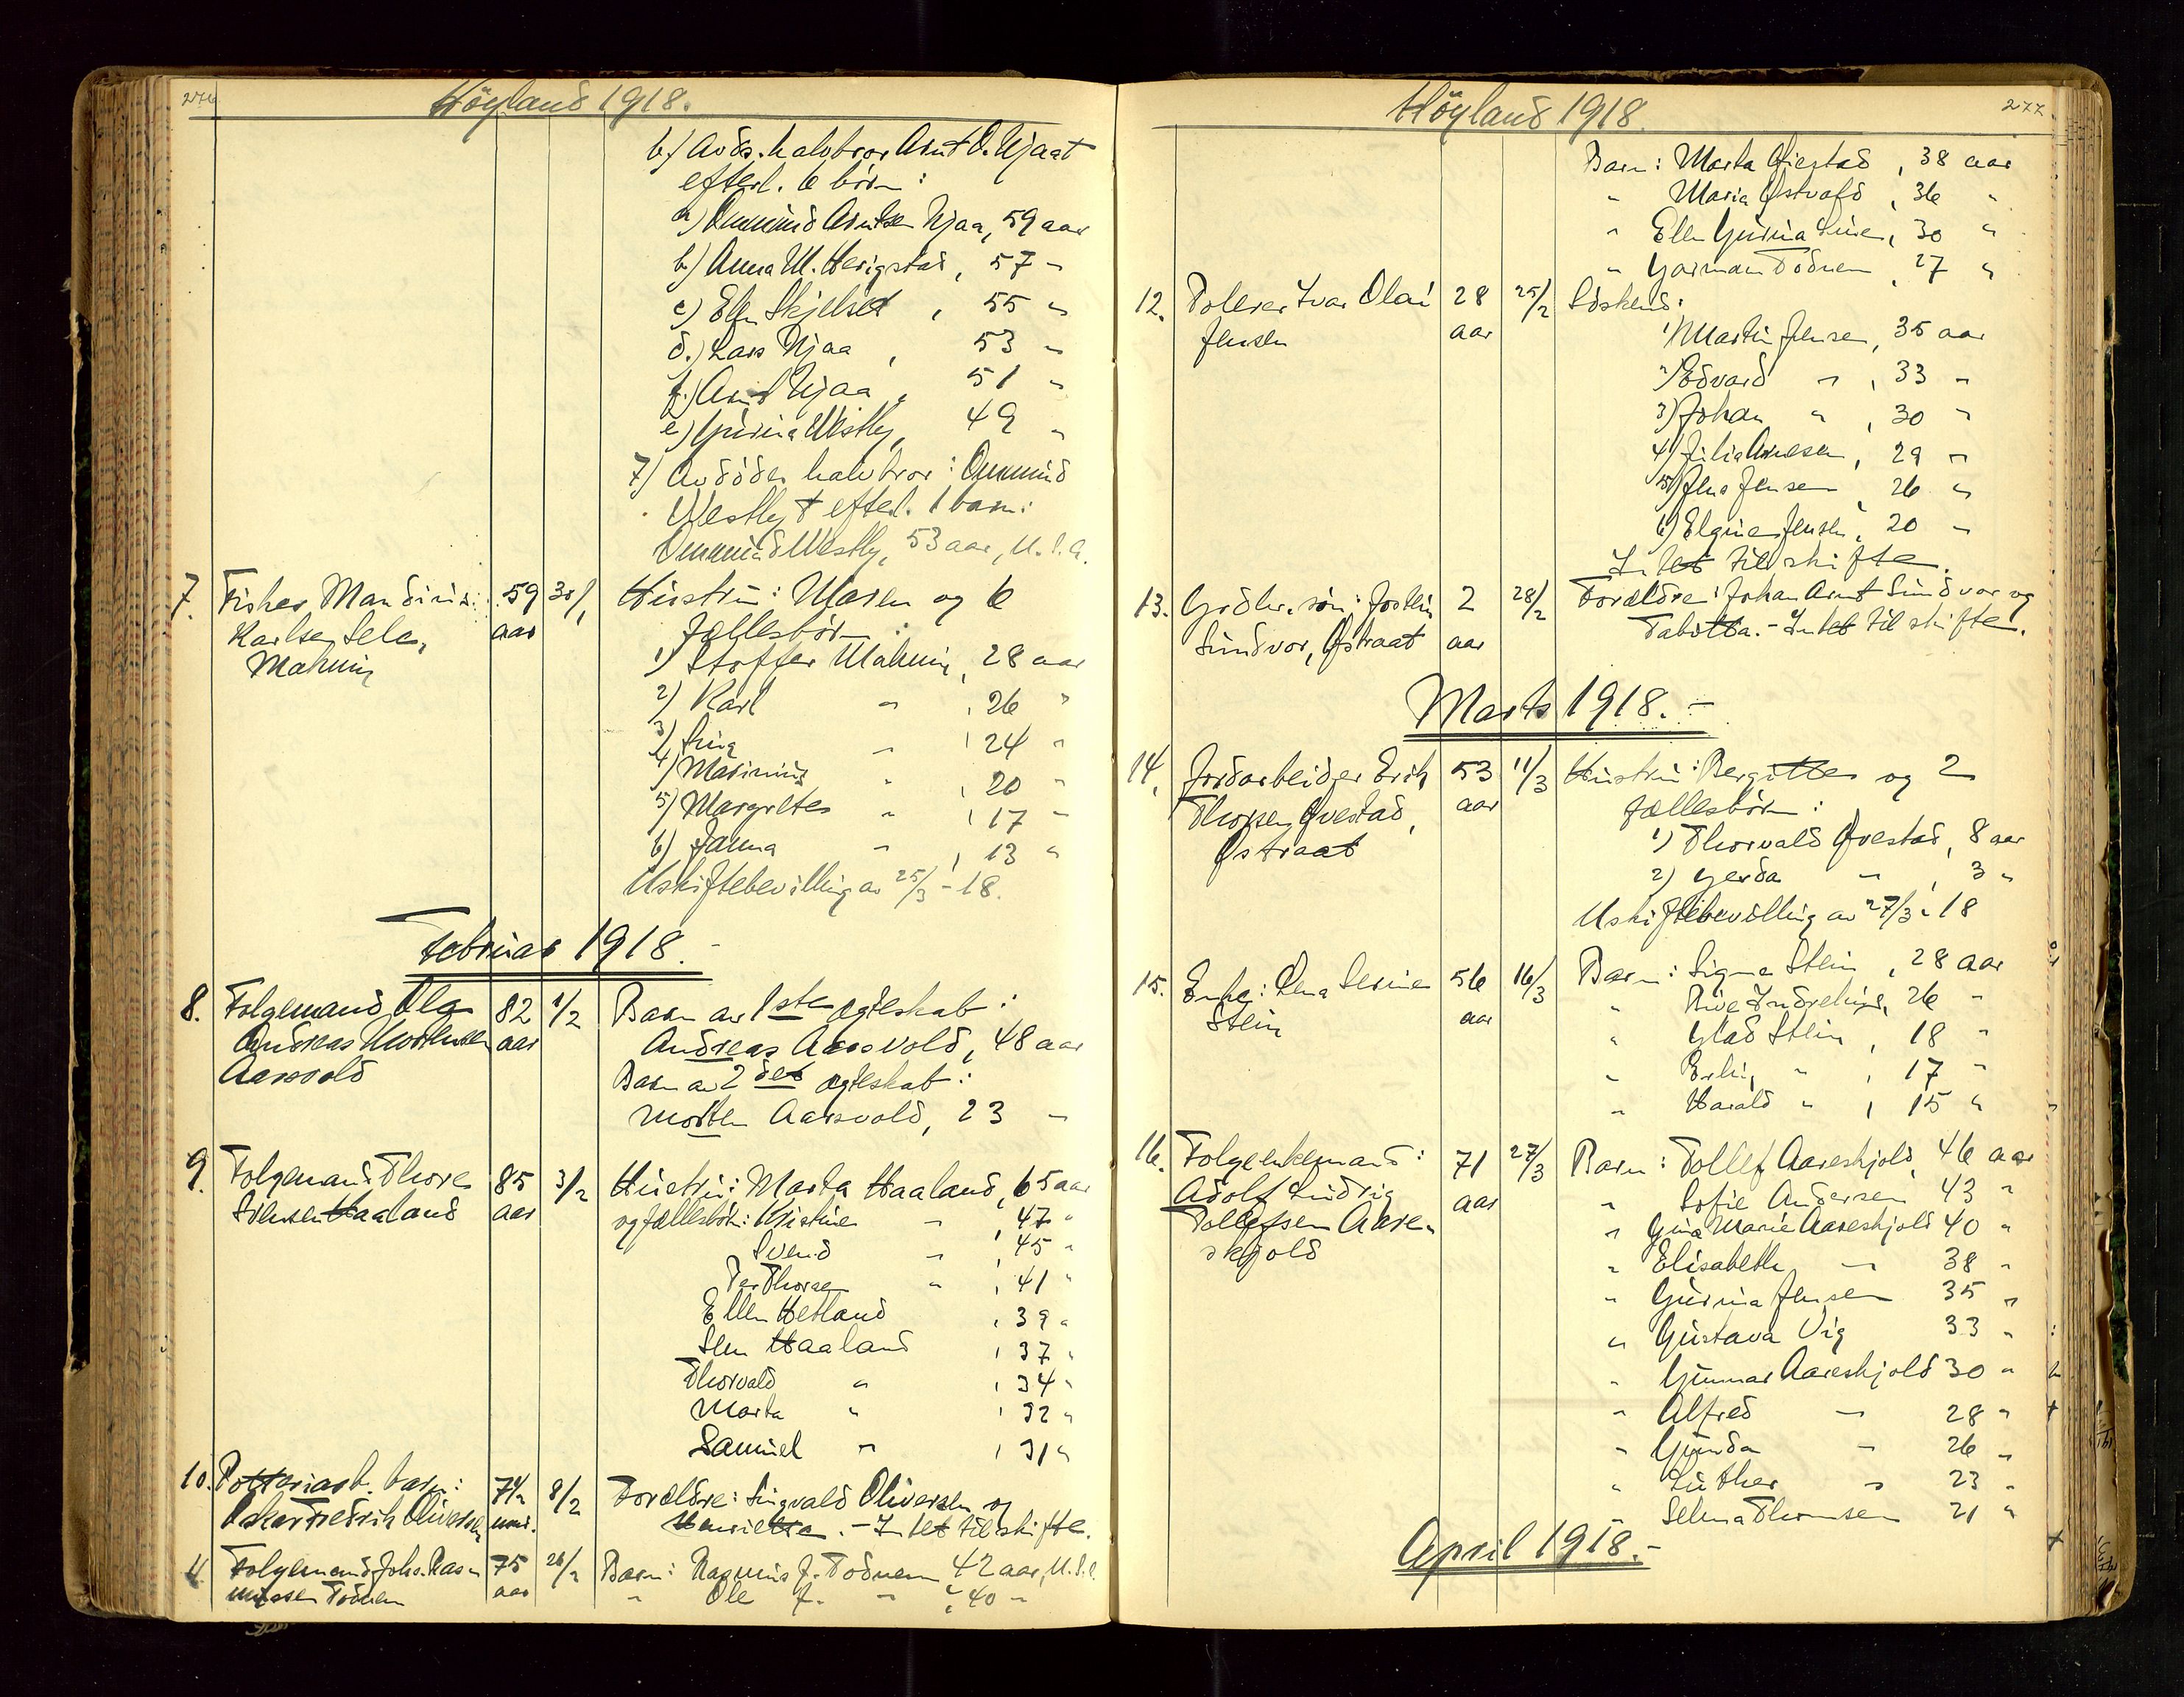 276
Höyland 1918.
b) Avdös. halvbror Arnt O. Njaat
efterl. 6 börn:
a) Ommund Arntsen Njaa, 59 aar
b) Anna M. Herigstad, 57 "
c) Elen Skjelsed, 55 "
d.) Lars Njaa, 53 "
f.) Arnt Njaa, 51 "
e) Gurina Westly, 49 "
7) Avdödes halvbror: Ommund
Westly † efterl. 1 barn:
Ommund Westly, 53 aar, U.S.A.
7. Fisker, Mandirius 59 30/1 Hustru: Maren og 6
Karlsen Sele, aar fællesbörn:
Malmin 1) Stoffer Malmin, 28 aar
2) Karl " , 26 "
3) " , 24 "
4) Marinius " , 20 "
5) Margretes " , 17 "
6) Janna " , 13 "
Uskiftebevilling av 25/3 - 18.
Februar 1918.-
8. Folgemand Ola 82 1/2 Barn av 1ste ægteskab:
Andreas Mortensen aar Andreas Aarsvold, 48 aar
Aarsvold Barn av 2det ægteskab:
Morten Aarsvold, 23 -
9. Folgemand Thore 85 3/2 Hustru: Marta Haaland, 65 aar
Haaland aar og fællesbörn: Kristine " , 47 "
Svend " , 45 "
Per Thorsen " , 41 "
Ellen Hetland , 39 "
Haaland , 37 "
Thorvald " , 34 "
Marta " , 32 "
Samuel " , 31 "
10. Potteriarb. barn: 7 1/2 8/2 Forældre: Sigvald Oliversen og
Oskar Fredrik Oliversen mnd. Henrietta. - Intet til skifte.
11. Folgemand Johs. Ras- 75 26/2 Barn: Rasmus J. Tödnem 42 aar, U.S.A.
mussen Tödnem aar " Ole J. " , 40 "
277
Höyland 1918.
Barn: Marta Öiestad, 38 aar
" Maria Östvold, 36 "
" Ellen Gurina Line, 30 "
" Garman Tödnem, 27 "
12. Polerer Ivar Olai 28 25/2 Söskend:
Jensen aar 1) Martin Jensen, 35 aar
2) Edvard " , 33 "
3) Johan " , 30 "
4) Julia Arnesen, 29 "
5) Jens Jensen, 26 "
6) Jensen, 20 "
Intet til skifte.
13. Grdbr. sön: Jostein 2 28/2 Forældre: Johan Arnt Sundvor og
Sundvor, Østraat aar Tabitta. - Intet til skifte.
Marts 1918.-
14. Jordarbeider Erik 53 11/3 Hustru: Bergitte og 2
Thorsen Qvestad, aar fællesbörn:
Østraat 1) Thorvald Qvestad, 8 aar
2) Gerda " , 3 "
Uskiftebevilling av 27/3 - 18
15. Enke: Lena Serine 56 16/3 Barn: Signe Stein, 28 aar
Stein aar " , 26 "
" Stein, 18 "
" Erling " , 17 "
" Harald " , 15 "
16. Folgeenkemand: 71 27/3 Barn: Tollef Aareskjold, 46 aar
Adolf Ludvig aar " Sofie Andersen 43 "
Tollefsen Aare- " Gina Marie Aareskjold 40 "
skjold " Elisabeth " 38 "
" Gurina Jensen 35 "
" Gustava Vig 33 "
" Gunnar Aareskjold 30 "
" Alfred " 28 "
" Gunda " 26 "
" Luther " 23 "
" Selma Thomsen 21 "
April 1918.-